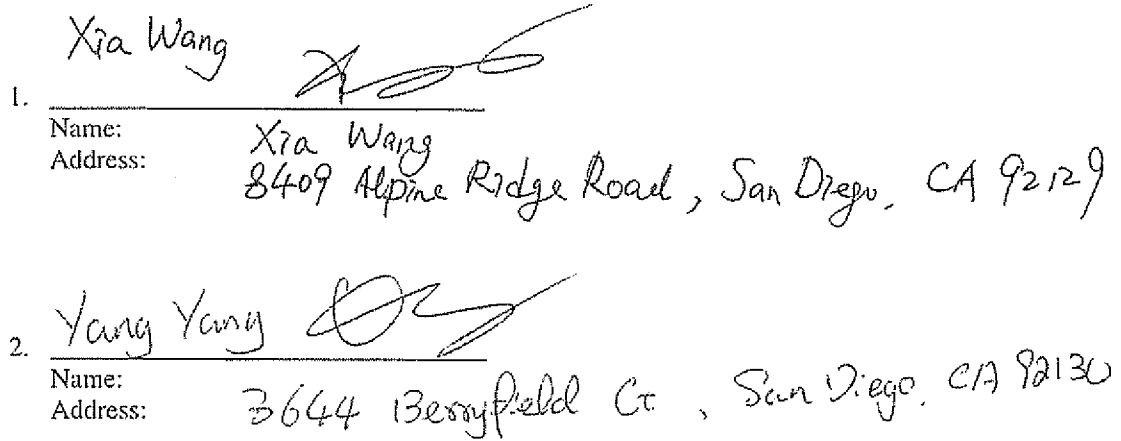 Xia Wang
1.
Name: Xia Wang
Address: 8409 Alpine Ridge Road, San Diego, CA 92129
Yang Yang
2.
Name:
Address: 3644 Berryfield Ct, San Diego, CA 92130